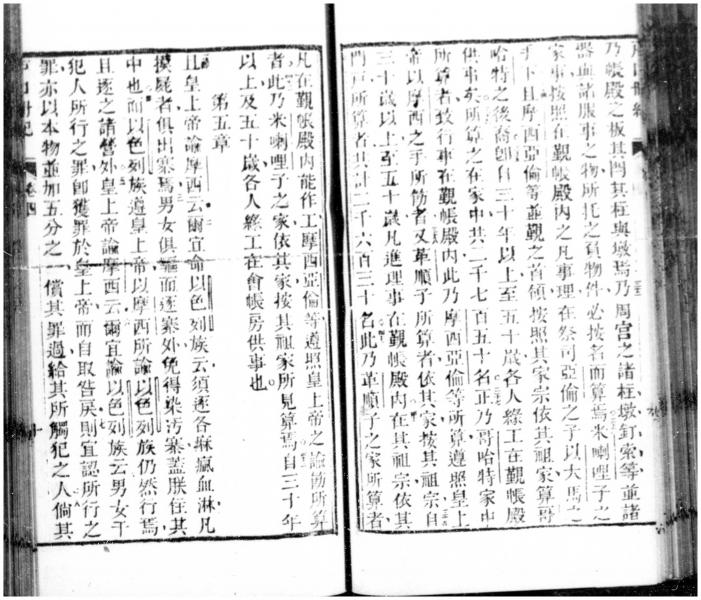 乃帳殿之板其閂其柱與墩焉乃周宮之諸柱墩釘索等並諸
器皿諸服事之物所托之負物件必按名而算焉米喇哩子之
家事按照在覲帳殿內之凡事理在祭司亞倫之子以大馬之
手下且摩西亞倫等並覲之首領按照其家宗依其祖家算哥
哈特之後裔卽自三十年以上至五十歲各人緣工在覲帳殿
供事矣所算之在家中共二千七百五十名正乃哥哈特家中
所算者致行事在覲帳殿內此乃摩西亞倫等所算遵照皇上
帝以摩西之手所飭者又革順子所算者依其家按其祖宗自
三十歲以上至五十歲凡進理事在覲帳殿內在其祖宗依其
門戶所算者共計二千六百三十名此乃革順子之家所算者
凡在覲帳殿內能作工摩西亞倫等遵照皇上帝之諭飭所算
者此乃米喇哩子之家依其家按其祖家所見算焉自三十年
以上及五十歲各人緣工在會帳房供事也
第五章
且皇上帝諭摩西云爾宜命以色列族云須逐各痳瘋血淋凡
摸屍者俱出寨焉男女俱驅而逐寨外免得染污寨蓋朕住其
中也而以色列族遵皇上帝以摩西所諭以色列族仍然行焉
且逐之諸營外皇上帝諭摩西云爾宜諭以色列族云男女干
犯人所行之罪卽獲罪於皇上帝而自取咎戾則宜認所行之
罪亦以本物並加五分之一償其罪過給其所觸犯之人倘其
卷四
十